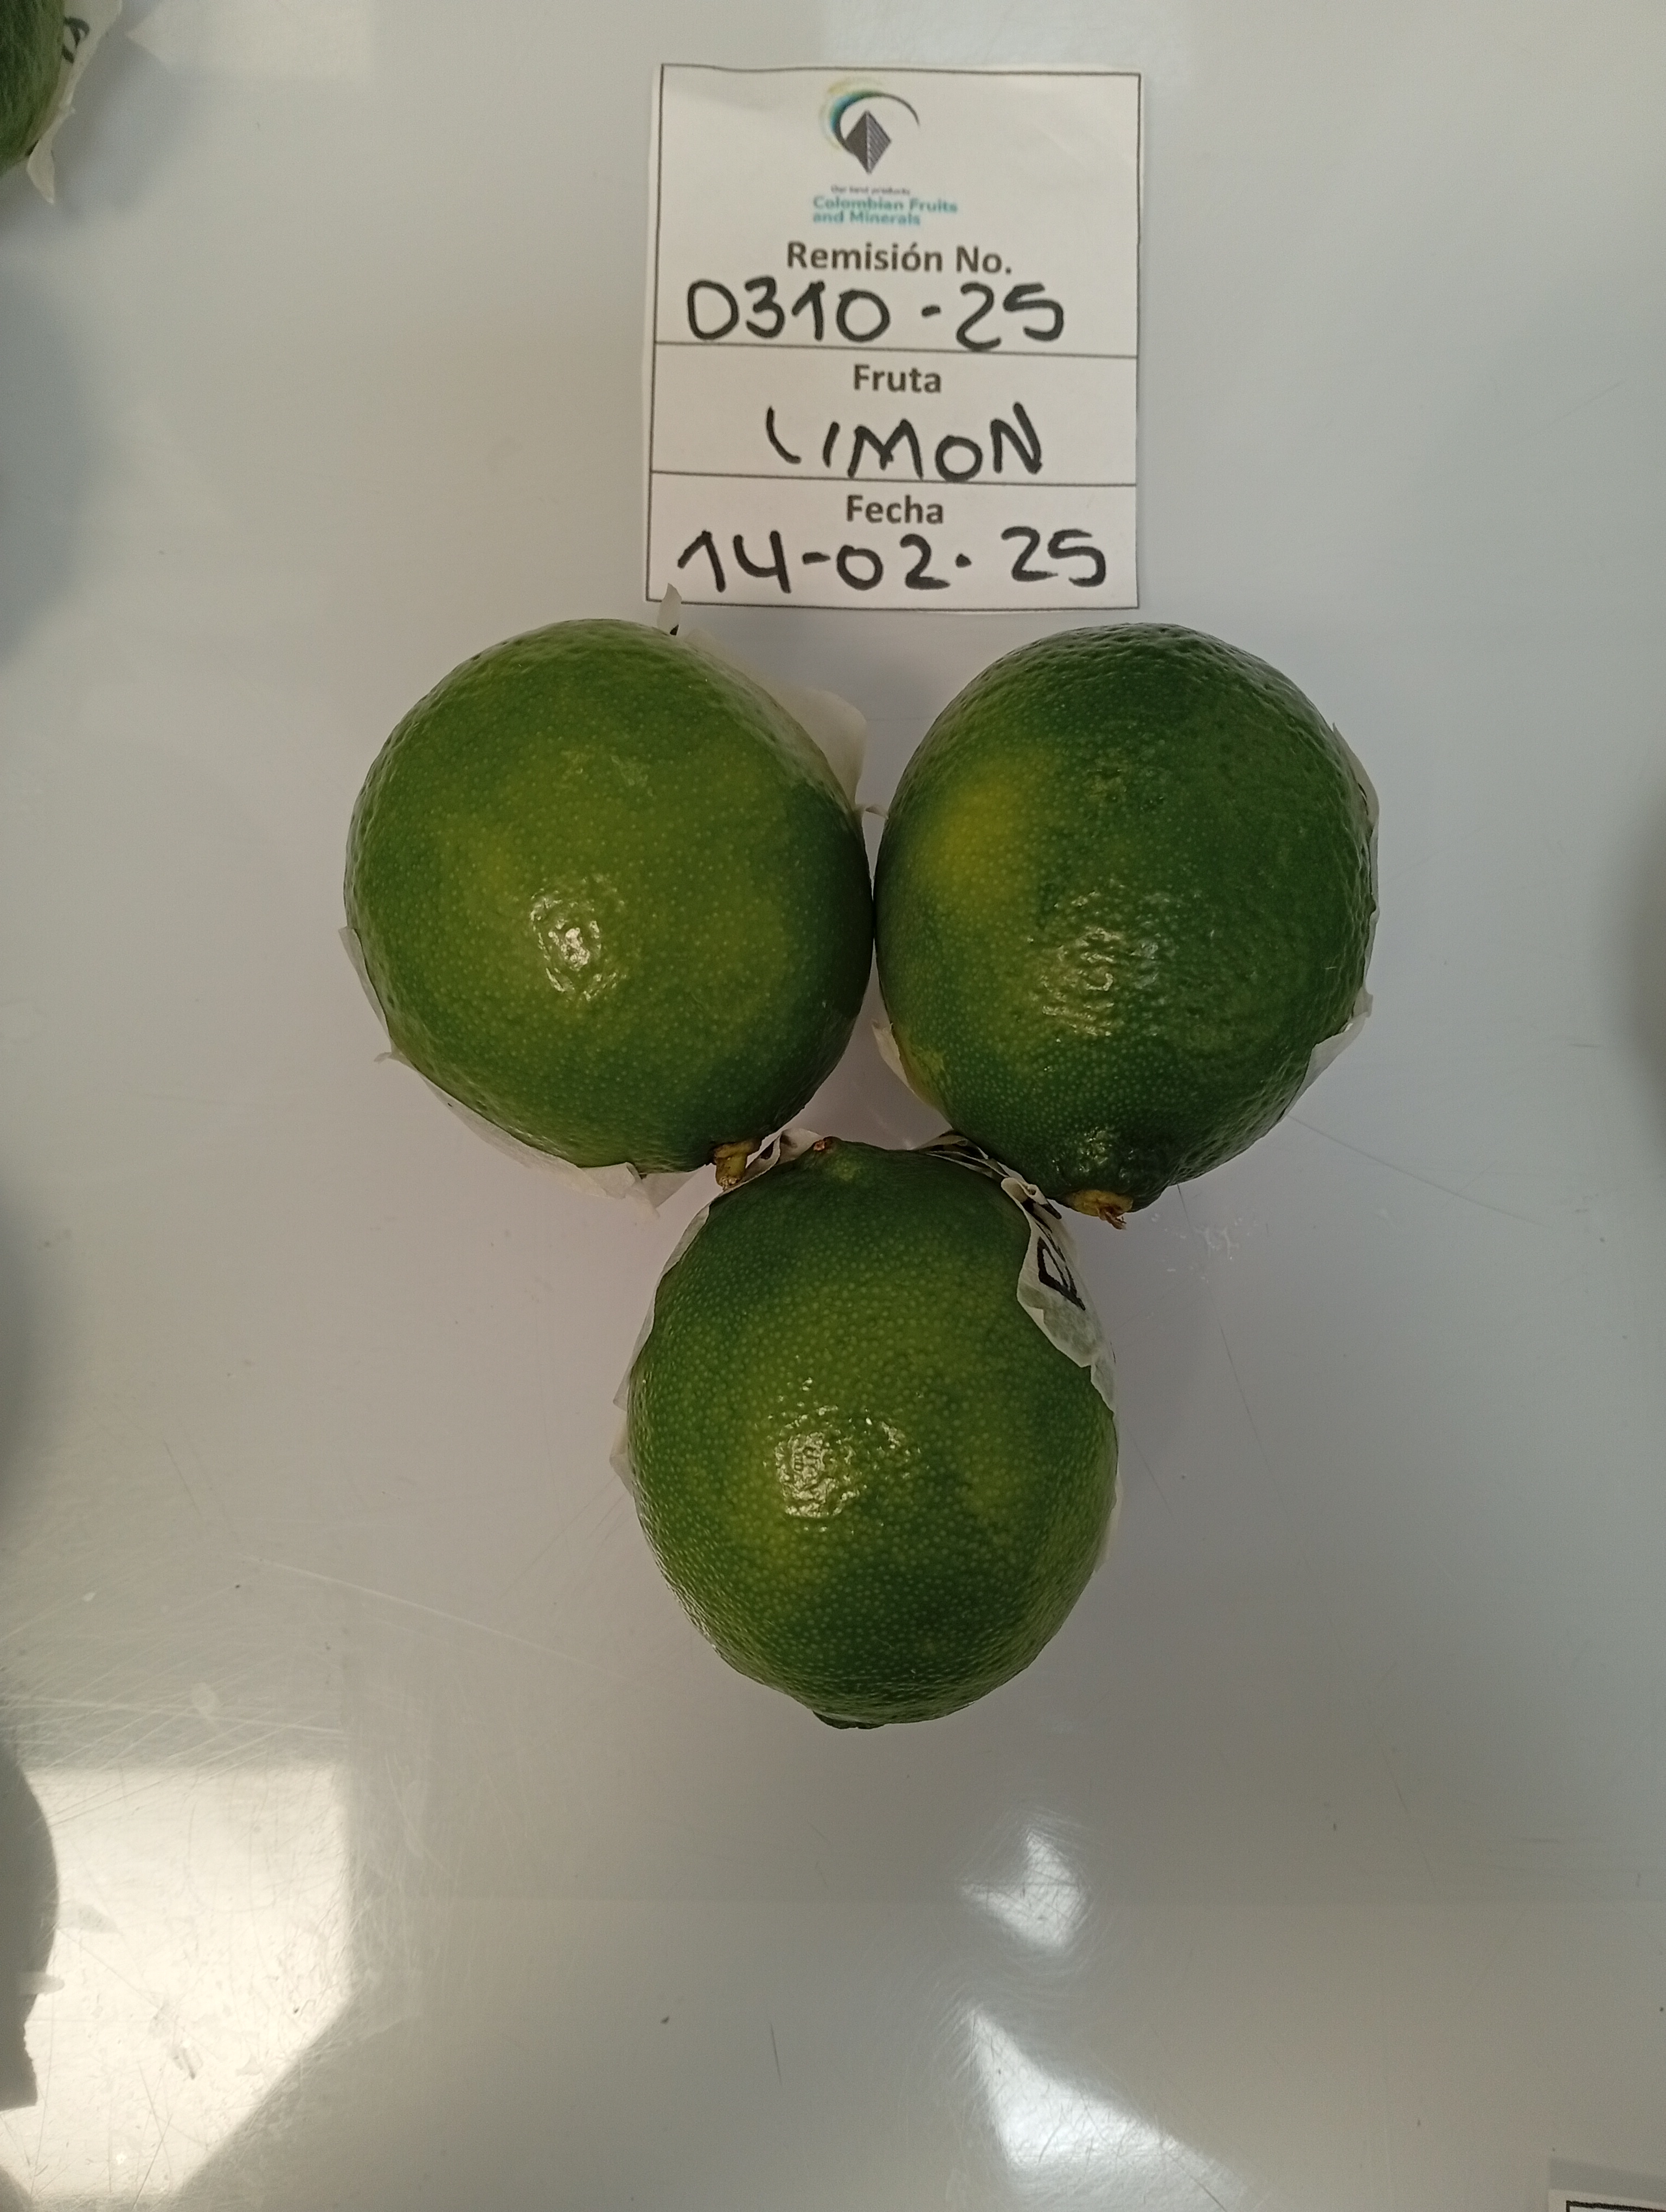 Our land products
Colombian Fruits
and Minerals
Remisión No.
0310-25
Fruta
LIMON
Fecha
14-02-25